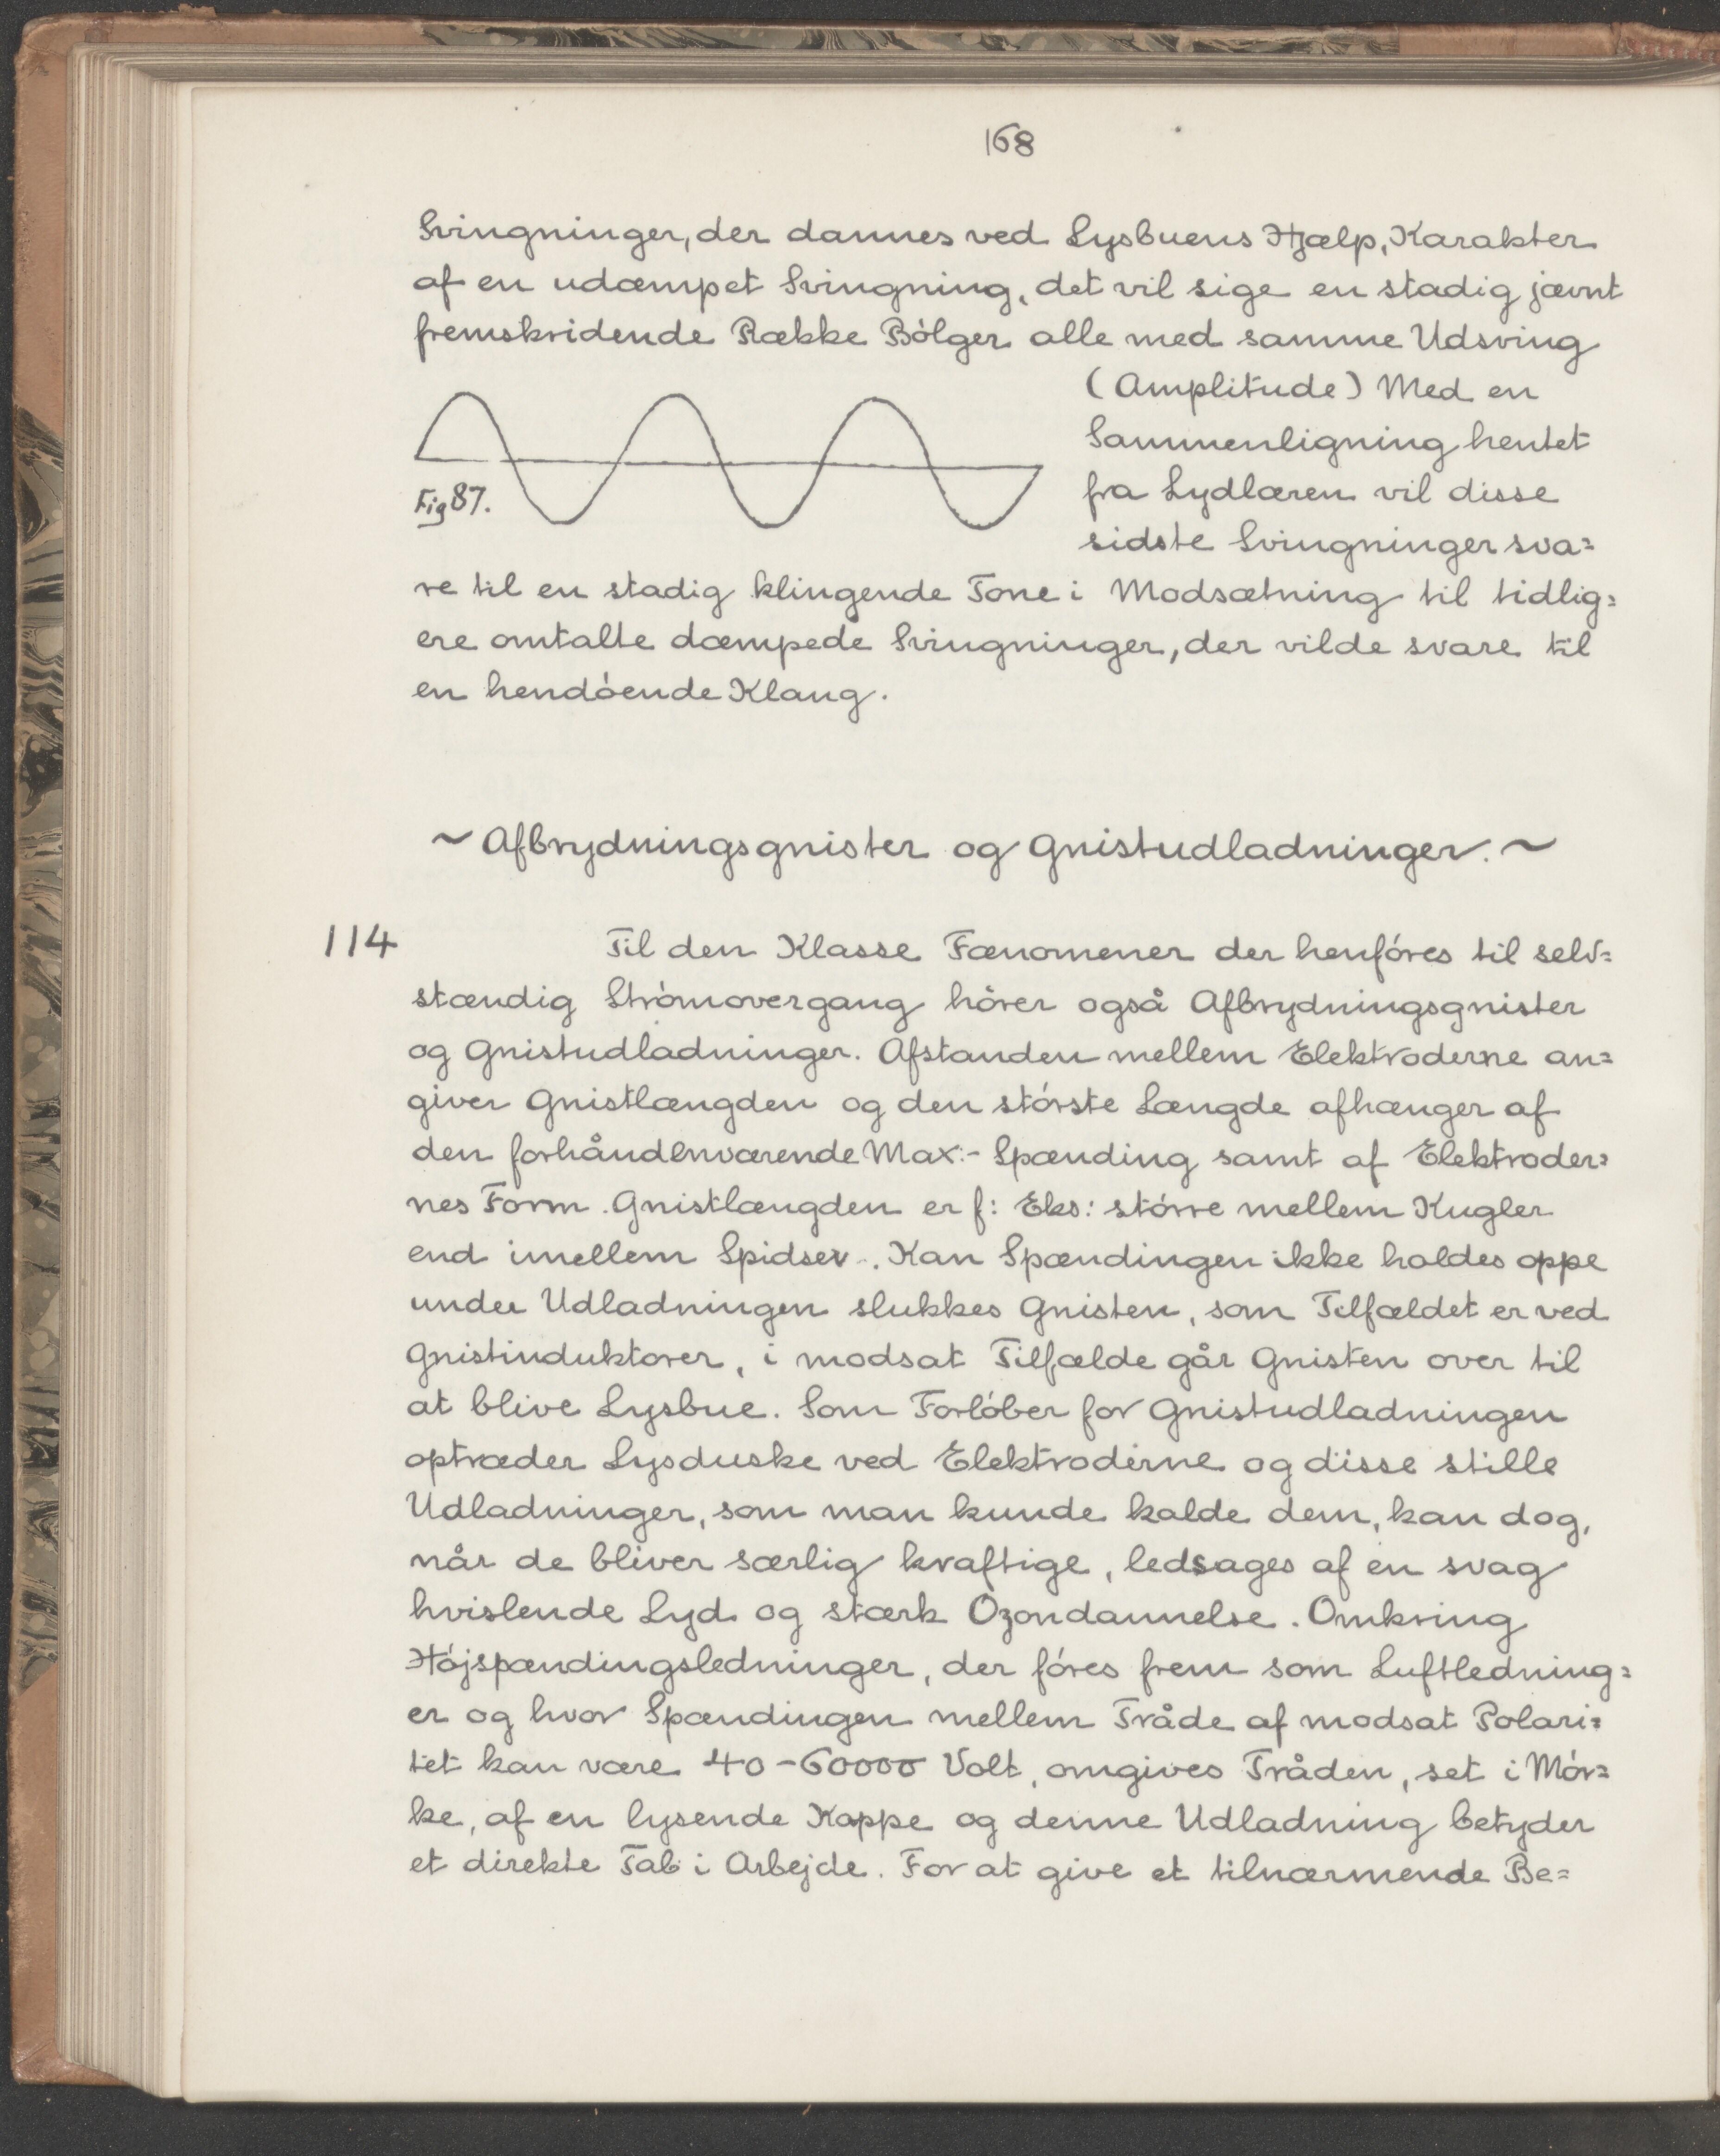 168
Svingninger, der dannes ved Lysbuens Hjælp, Karakter
af en udæmpet Svingning, det vil sige en stadig jævnt
fremskridende Række Bólger alle med samme Udsving
(Amplitude) Med en
Sammenligning hentet
fra Lydlæren vil disse
sidste Svingninger sva=
Fig 87.
re til en stadig klingende Tone i Modsætning til tidlig=
ere omtalte dæmpede Svingninger, der vilde svare til
en hendóende Klang.
~ Afbrydningsgnister og Gnistudladninger. ~
114
Til den Klasse Fænomener der henfóres til selv=
stændig Strómovergang hórer også Afbrydningsgnister
og Gnistudladninger. Afstanden mellem Elektroderne an=
giver Gnistlængden og den stórste Længde afhænger af
den forhåndenværende Max:- Spænding samt af Elektroder=
nes Form. Gnistlængden er f: Eks: stórre mellem Kugler
end imellem Spidser. Kan Spændingen ikke holdes oppe
under Udladningen slukkes Gnisten, som Tilfældet er ved
Gnistinduktorer, i modsat Tilfælde går Gnisten over til
at blive Lysbue. Som Forlóber for Gnistudladningen
optræder Lysduske ved Elektroderne og disse stille
Udladninger, som man kunde kalde dem, kan dog,
når de bliver særlig kraftige, ledsages af en svag
hvislende Lyd og stærk Ozondannelse. Omkring
Hójspændingsledninger, der fóres frem som Luftledning=
er og hvor Spændingen mellem Tråde af modsat Polari=
tet kan være 40-60000 Volt, omgives Tråden, set i Mór=
ke, af en lysende Kappe og denne Udladning betyder
et direkte Tab i Arbejde. For at give et tilnærmende Be=